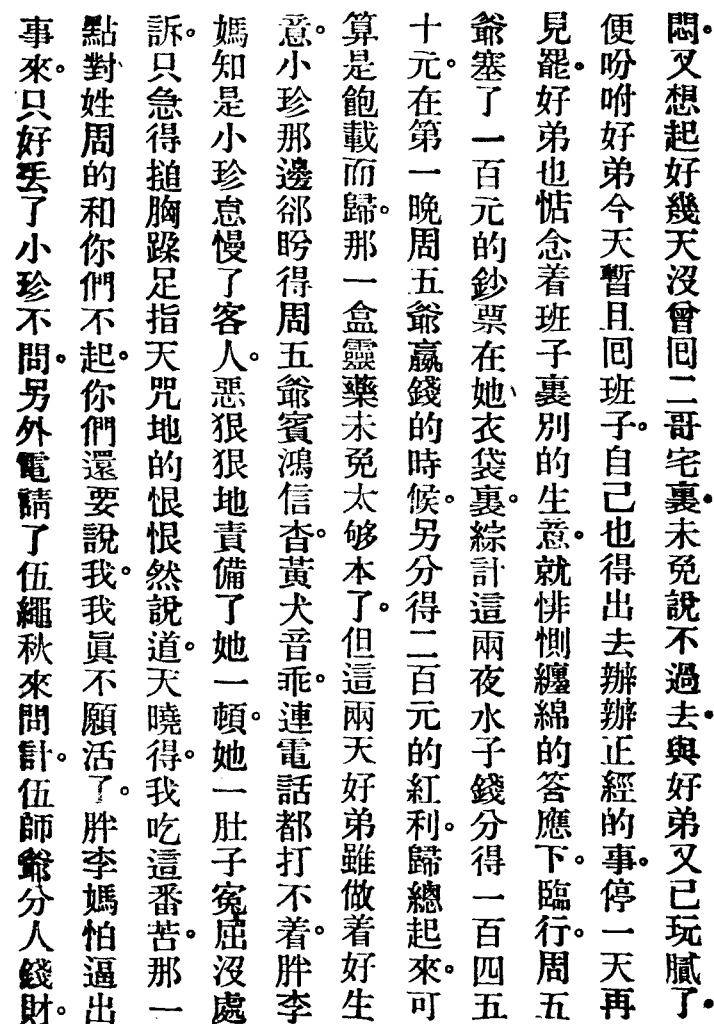 悶。又想起好幾天沒曾囘二哥宅裏。未免說不過去。與好弟又已玩膩了。
便吩咐好弟今天暫且囘班子。自己也得出去辦辦正經的事。停一天再
見罷。好弟也惦念着班子裏別的生意。就悱惻纏綿的答應下。臨行。周五
爺塞了一百元的鈔票在她衣袋裏。綜計這兩夜水子錢分得一百四五
十元。在第一晚周五爺贏錢的時候。另分得二百元的紅利。歸總起來。可
算是飽載而歸。那一盒靈藥未免太够本了。但這兩天好弟雖做着好生
意。小珍那邊郤盻得周五爺賓鴻信杳。黃犬音乖。連電話都打不着。胖李
媽知是小珍怠慢了客人。惡狠狠地責備了她一頓。她一肚子寃屈沒處
訴。只急得搥胸蹂足指天咒地的恨恨然說道。天曉得。我吃這番苦。那一
點對姓周的和你們不起。你們還要說我。我眞不願活了。胖李媽怕逼出
事來。只好丢了小珍不問。另外電請了伍繩秋來問計。伍師爺分人錢財。